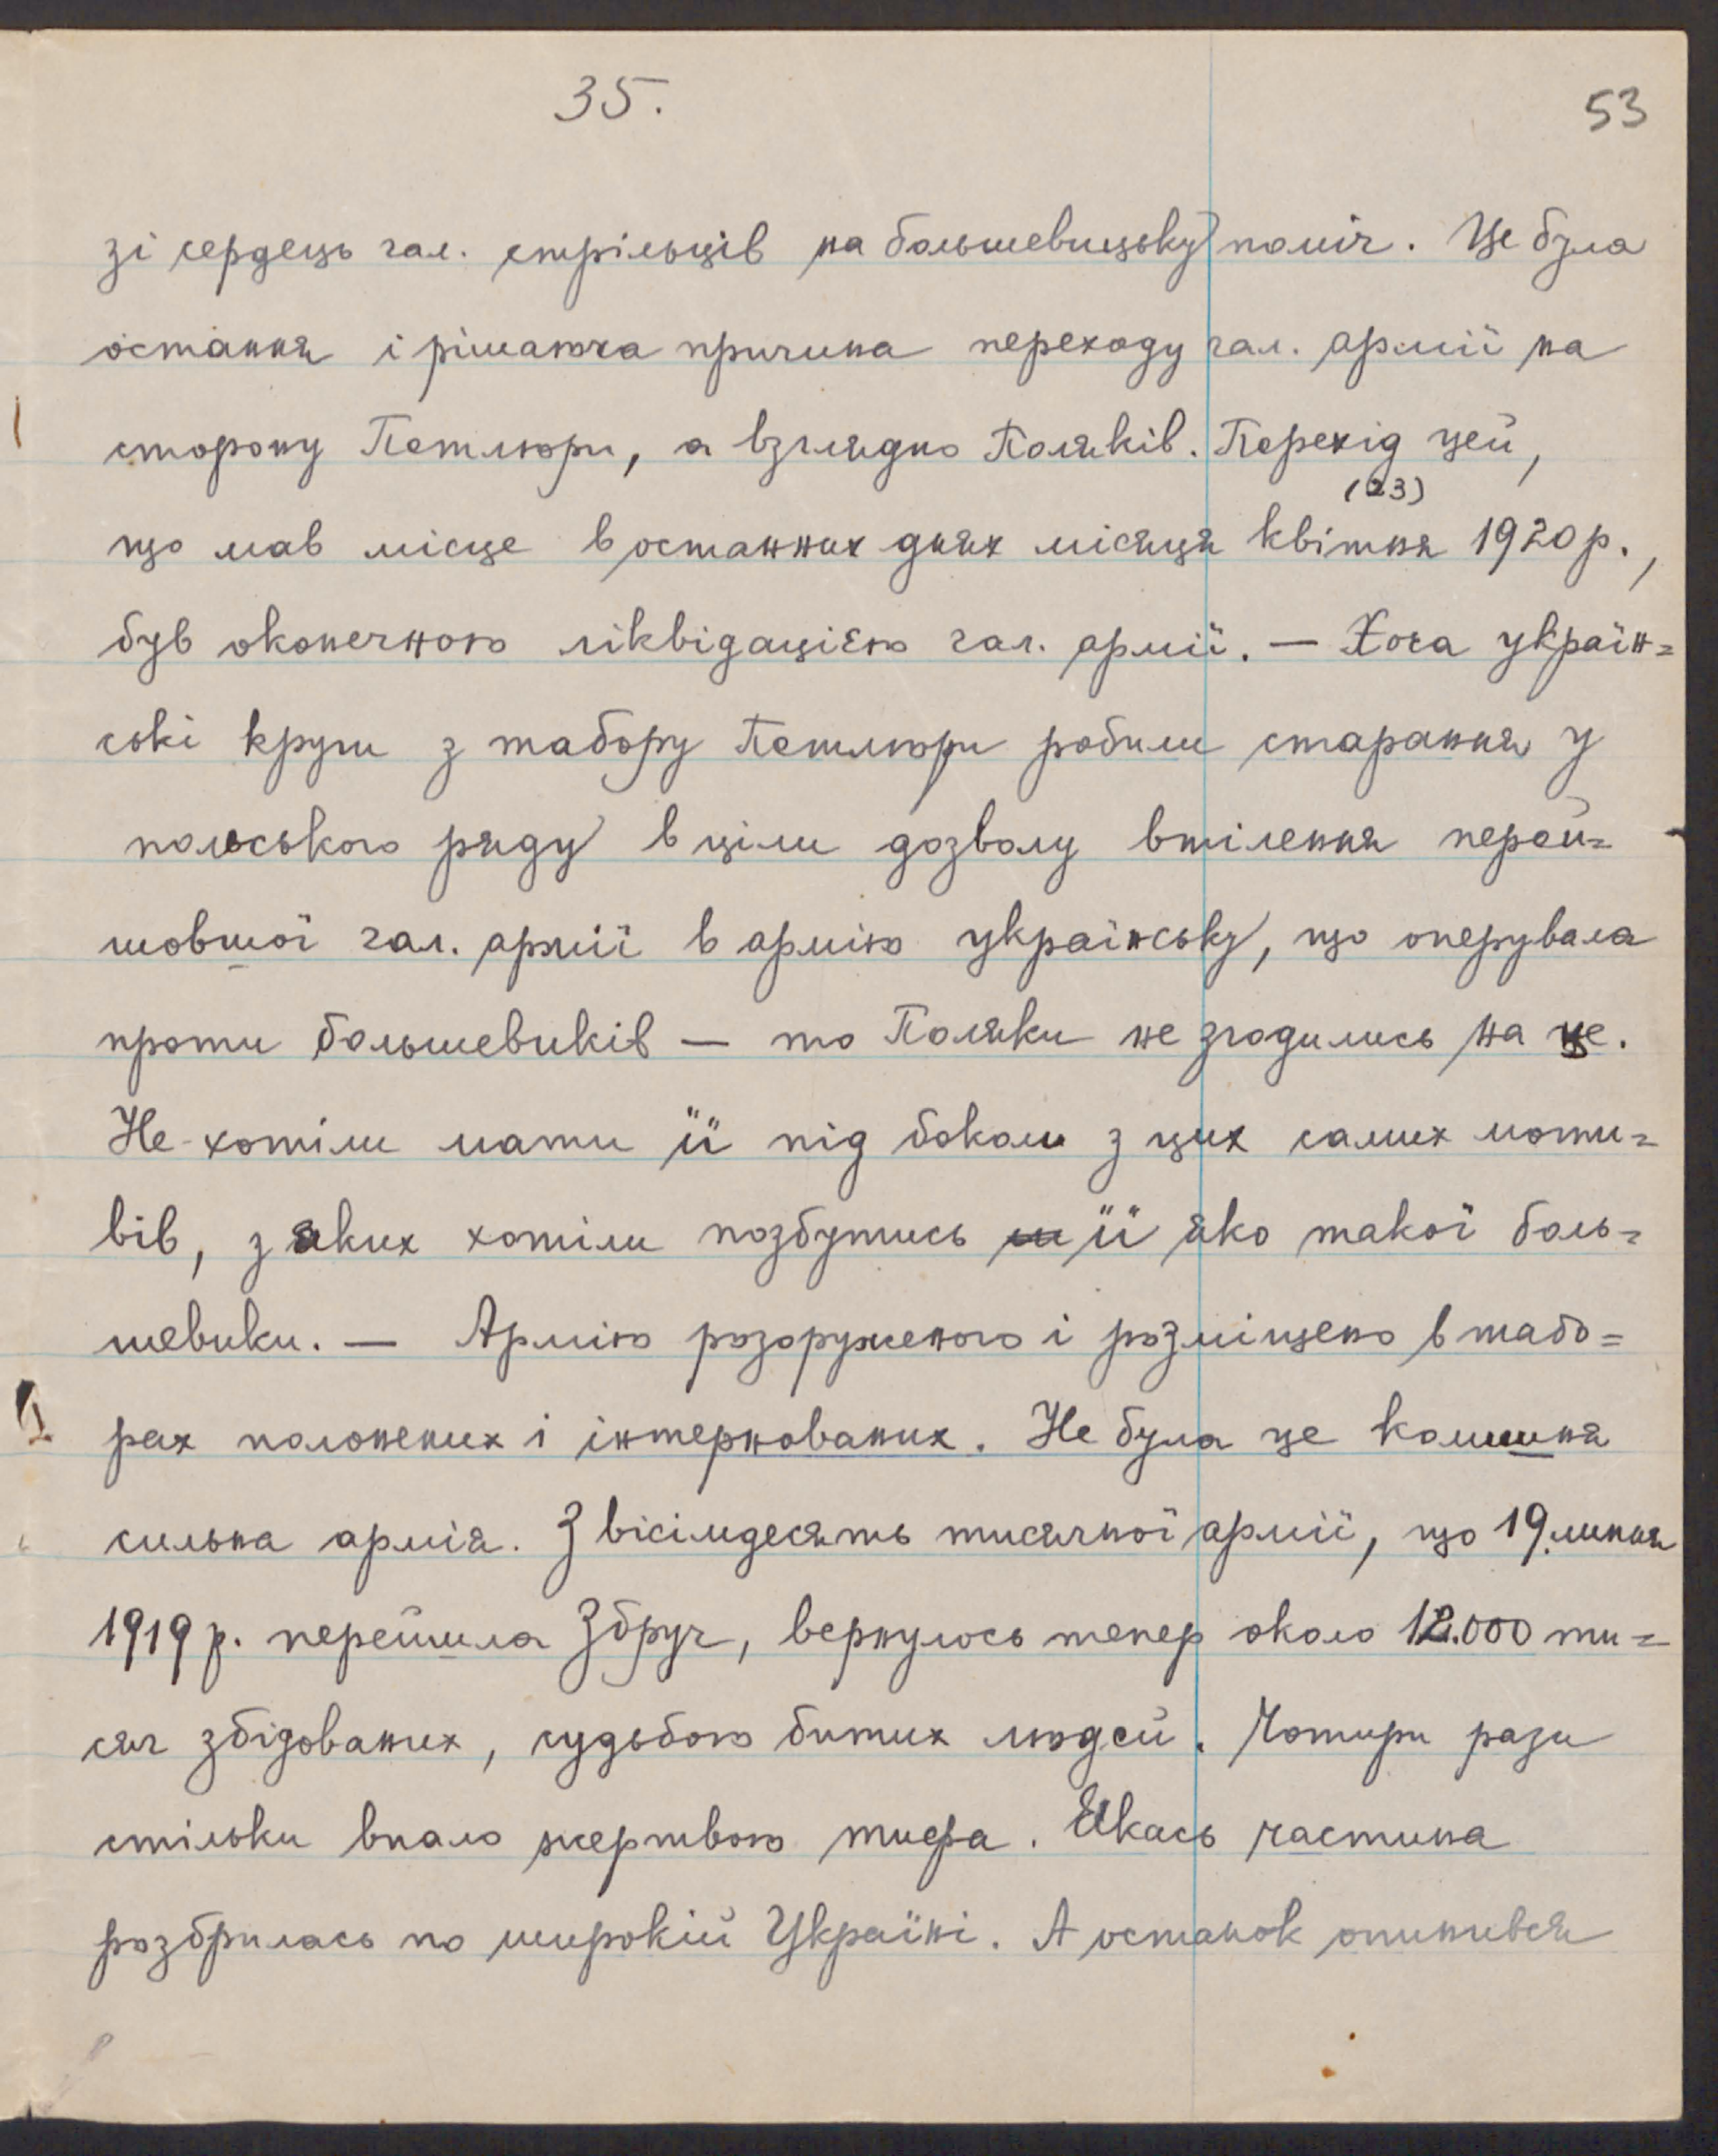 35.
53
зі сердець гал. стрільців на большевицьку поміч. Це була
остання і рішаюча причина переходу гал. армії на
сторону Петлюри, а взглядно Поляків. Перехід цей,
(23)
що мав місце в останних днях місяця квітня 1920 р.,
був оконечною ліквідацією гал. армії. — Хоча україн=
ські круги з табору Петлюри робили старання у
польського ряду в ціли дозволу втілення перей=
шовшої гал. армії в армію українську, що оперувала
проти большевиків — то Поляки не згодились на це.
Не хотіли мати її під боком з цих самих моти=
вів, з яких хотіли позбутись її яко такої боль=
шевики. — Армію розоруженого і розміщено в табо=
рах полонених і інтернованих. Не була це колишня
сильна армія. З вісімдесять тисячної армії, що 19. липня
1919 р. перейшла Збруч, вернулось тепер около 12.000 ти=
сяч збідованих, судьбою битих людей. Чотири рази
стільки впало жертвою тифа. Якась частина
розбрилась по широкій Україні. А останок опинився